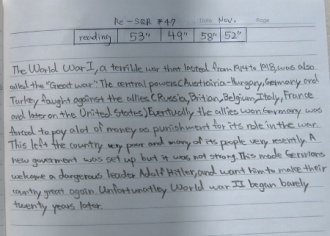 Re-SQR #47 Date Nov. Page
reading 53" 49" 58" 52"
The World War I, a terrible war that lasted from 1914 to 1918, was also
called the "Great war". The central powers (Austria-Hungary, Germany and
Turkey fought against the allies (Russia, Britan, Belgium, Italy, France
and later on the United States) Eventually, the allies won Germany was
forced to pay alot of money as punishment for its role in the war.
This left the country very poor and many of its people very resently. A
new government was set up but it was not strong. This made Germans
welcome a dangerous leader Adolf Hitler, and want him to make their
country great again. Unfortunatley World war II began barely
twenty years later